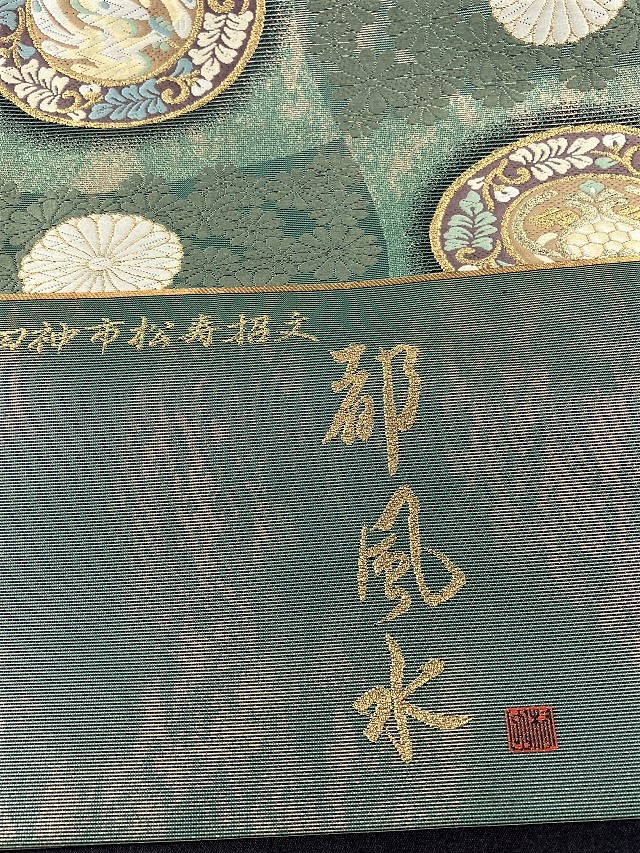 四神市松寿招文
都風水